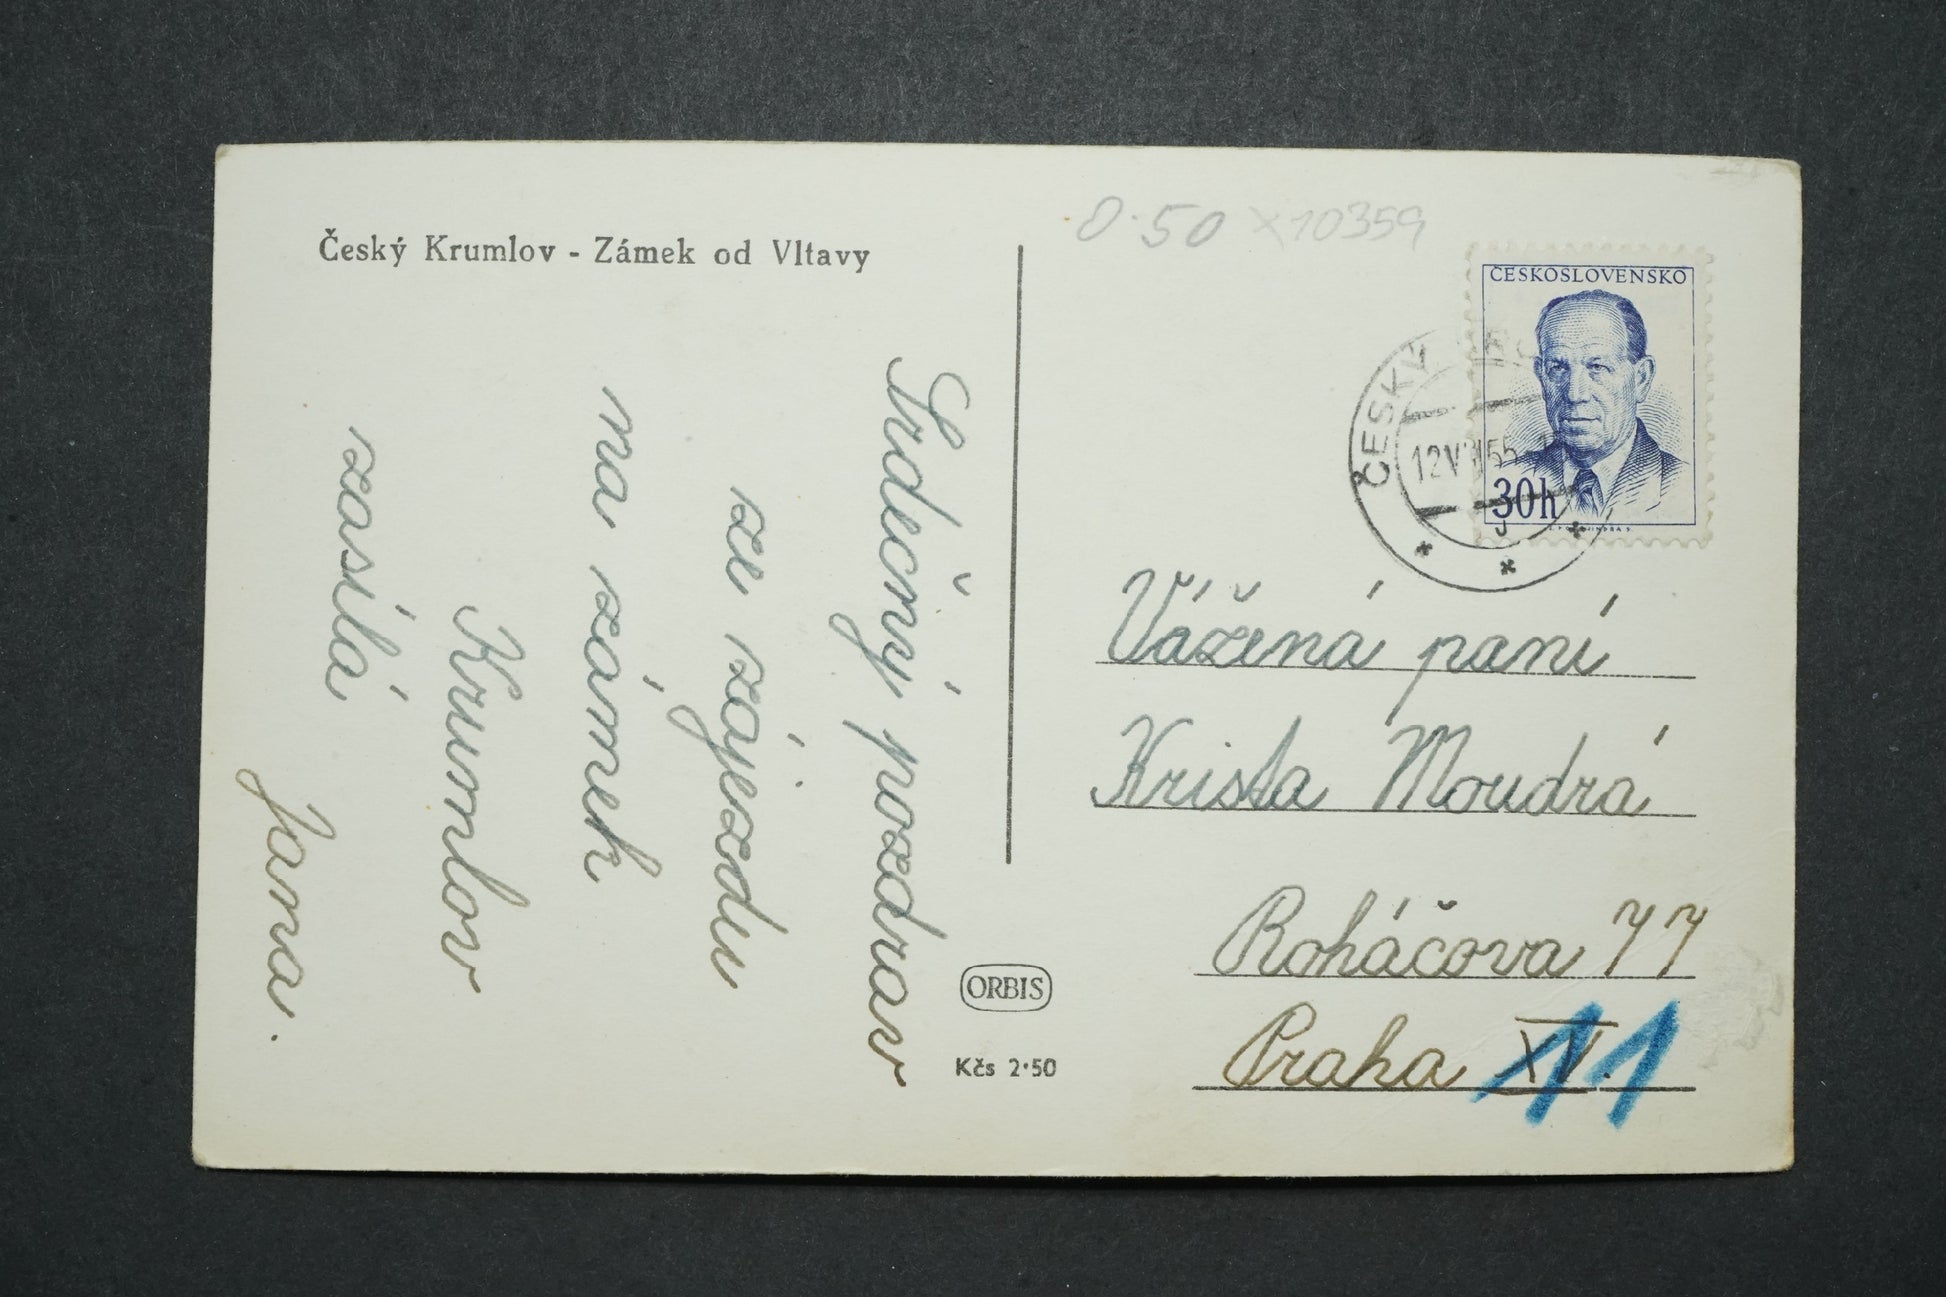 Český Krumlov - Zámek od Vltavy
Srdečný pozdrav
ze zájezdu
na zámek
Krumlov
zasílá
Jana.
ORBIS
Kčs 2·50
0·50 x10359
ČESKOSLOVENSKO
30h
ČESKÝ
Vážená paní
Krista Moudrá
Roháčova 77
Praha XV. 11